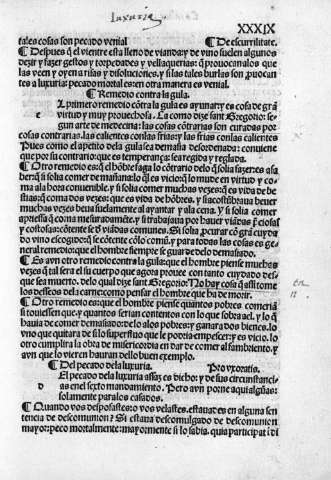 luxuria
XXXIX
tales cosas son pecado venial ¶ De escurrilitate.
¶ Despues q̃ el vientre esta lleno de viandas y de vino suelen algunos
dezir y fazer gestos y torpedades y vellaquerias: q̃ prouocan a los que
las veen y oyen a risas y disoluciones, y si las tales burlas son prouocan
tes a luxuria: pecado mortal es: en otra manera es venial.
¶ Remedio contra la gula.
El primero remedio cõtra la gula es ayunar: y es cosa de grã
virtud y muy prouechosa. La como dize sant Gregorio: se-
gun arte de medicina: las cosas cõtrarias son curadas por
cosas contrarias. las calientes con las frias: y las frias con las calientes
Pues como el apetito dela gula sea demasia desordenada: conuiene
que por su contrario: que es temperança: sea regida y reglada.
¶ Otro remedio es: q̃ el hõbre faga lo cõtrario delo q̃ solia fazer: es a sa
ber: q̃ si solia comer de mañana: lo q̃ es vicio: q̃ lo mude en virtud y co-
ma ala hora conuenible. y si solia comer muchas vezes: q̃ es vida de be-
stias: q̃ coma dos vezes: que es vida de hõbres. y si acostũbraua beuer
muchas vezes beua suelamente al ayantar y ala cena. Y si solia comer
apriessa q̃ coma mesuradamẽte. y si trabajaua por hauer viãdas d̃licosas
y costosas: cõtente se d̃ viãdas comunes. Si solia p̃curar cõ grã cuyda
do vino escogido: q̃ se cõtente cõ lo comũ. y para todas las cosas es ge-
neral remedio: que el hombre siempre se guarde delo demasiado.
¶ Es avn otro remedio contra la gula: que el hombre piense muchas
vezes q̃ tal sera el su cuerpo que agora prouee con tanto cuydado des-
que sea muerto. delo qual dize sant Gregorio: No hay cosa q̃ assi tome
los desseos del carne: como pensar el hombre que ha de morir.
¶ Otro remedio es: que el hombre piense quantos pobres comeriã
si touiessen que: y quantos serian contentos con lo que sobra a el. y lo q̃
hauia de comer demasiado: delo alos pobres: y ganara dos bienes. lo
vno que quitara de si lo superfluo que le podria empescer: y es vicio. lo
otro cumplira la obra de misericordia en dar de comer al fambriento. y
avn que lo vieren hauran dello buen exemplo.
¶ Del pecado dela luxuria. Pro vxoratis.
El pecado dela luxuria assaz es dicho: y de sus circunstancias
en el sexto mandamiento. Pero avn pone aqui algũas:
solamente para los casados.
¶ Quando vos desposastes: o vos velastes. estauades en alguna sen
tencia de descomunion? Si estaua descomulgado de descomunion
mayor: peco mortalmente: mayormente si lo sabia. quia participat i di